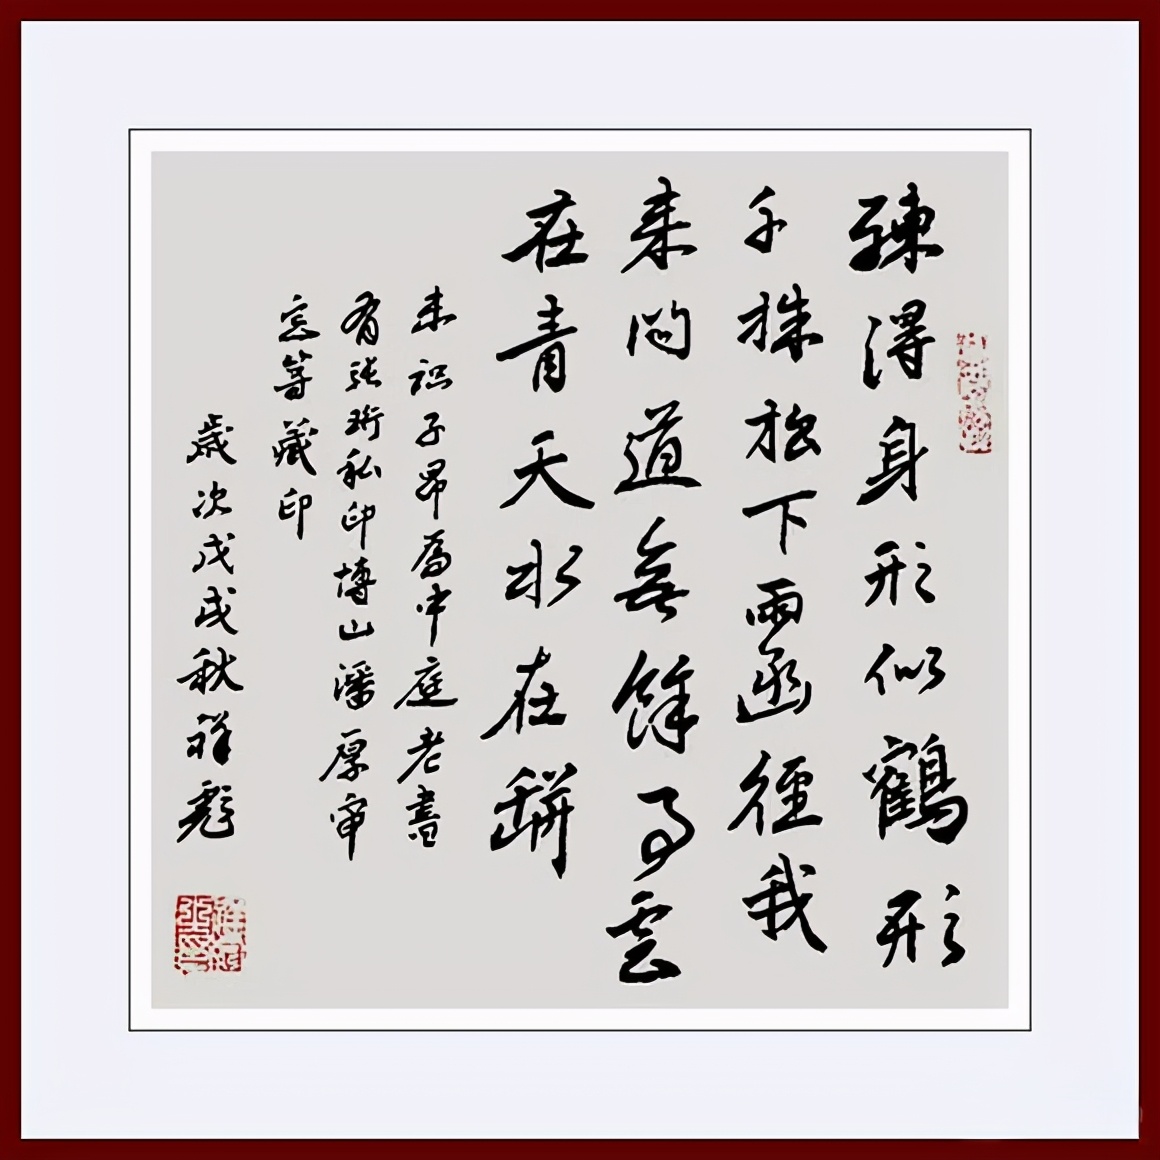 練得身形似鶴形
千株松下兩函經我
来問道無餘事雲
在青天水在瓶
未識子昂為中庭老書
有張珩私印博山潘厚审
定等藏印
歲次戊戌秋祥彪